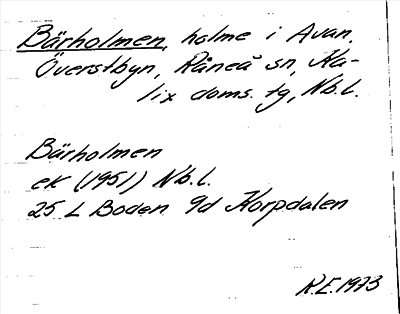 Bärholmen, holme i Avan.
Överstbyn, Råneå sn, Ka-
lix doms. tg, Nb.l.
Bärholmen
ek (1951) Nb.l.
25 L Boden 9d Korpdalen
R.E. 1973